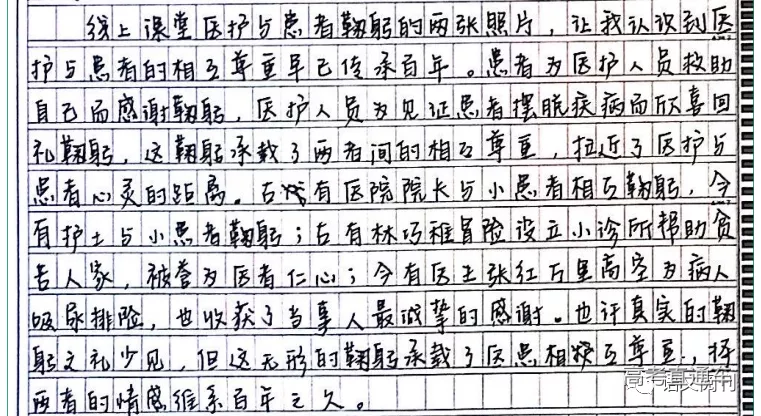 线上课堂医护与患者鞠躬的两张照片，让我认识到医
护与患者的相互尊重早已传承百年。患者为医护人员救助
自己而感谢鞠躬，医护人员为见证患者摆脱疾病而欣喜回
礼鞠躬，这鞠躬承载了两者间的相互尊重，拉近了医护与
患者心灵的距离。古有医院院长与小患者相互鞠躬，今
有护士与小患者鞠躬；古有林巧稚冒险设立小诊所帮助贫
苦人家，被誉为医者仁心；今有医生张红万里高空为病人
吸尿排险，也收获了当事人最诚挚的感谢。也许真实的鞠
躬之礼少见，但这无形的鞠躬承载了医患相互尊重，将
两者的情感维系百年之久。
高考直通车